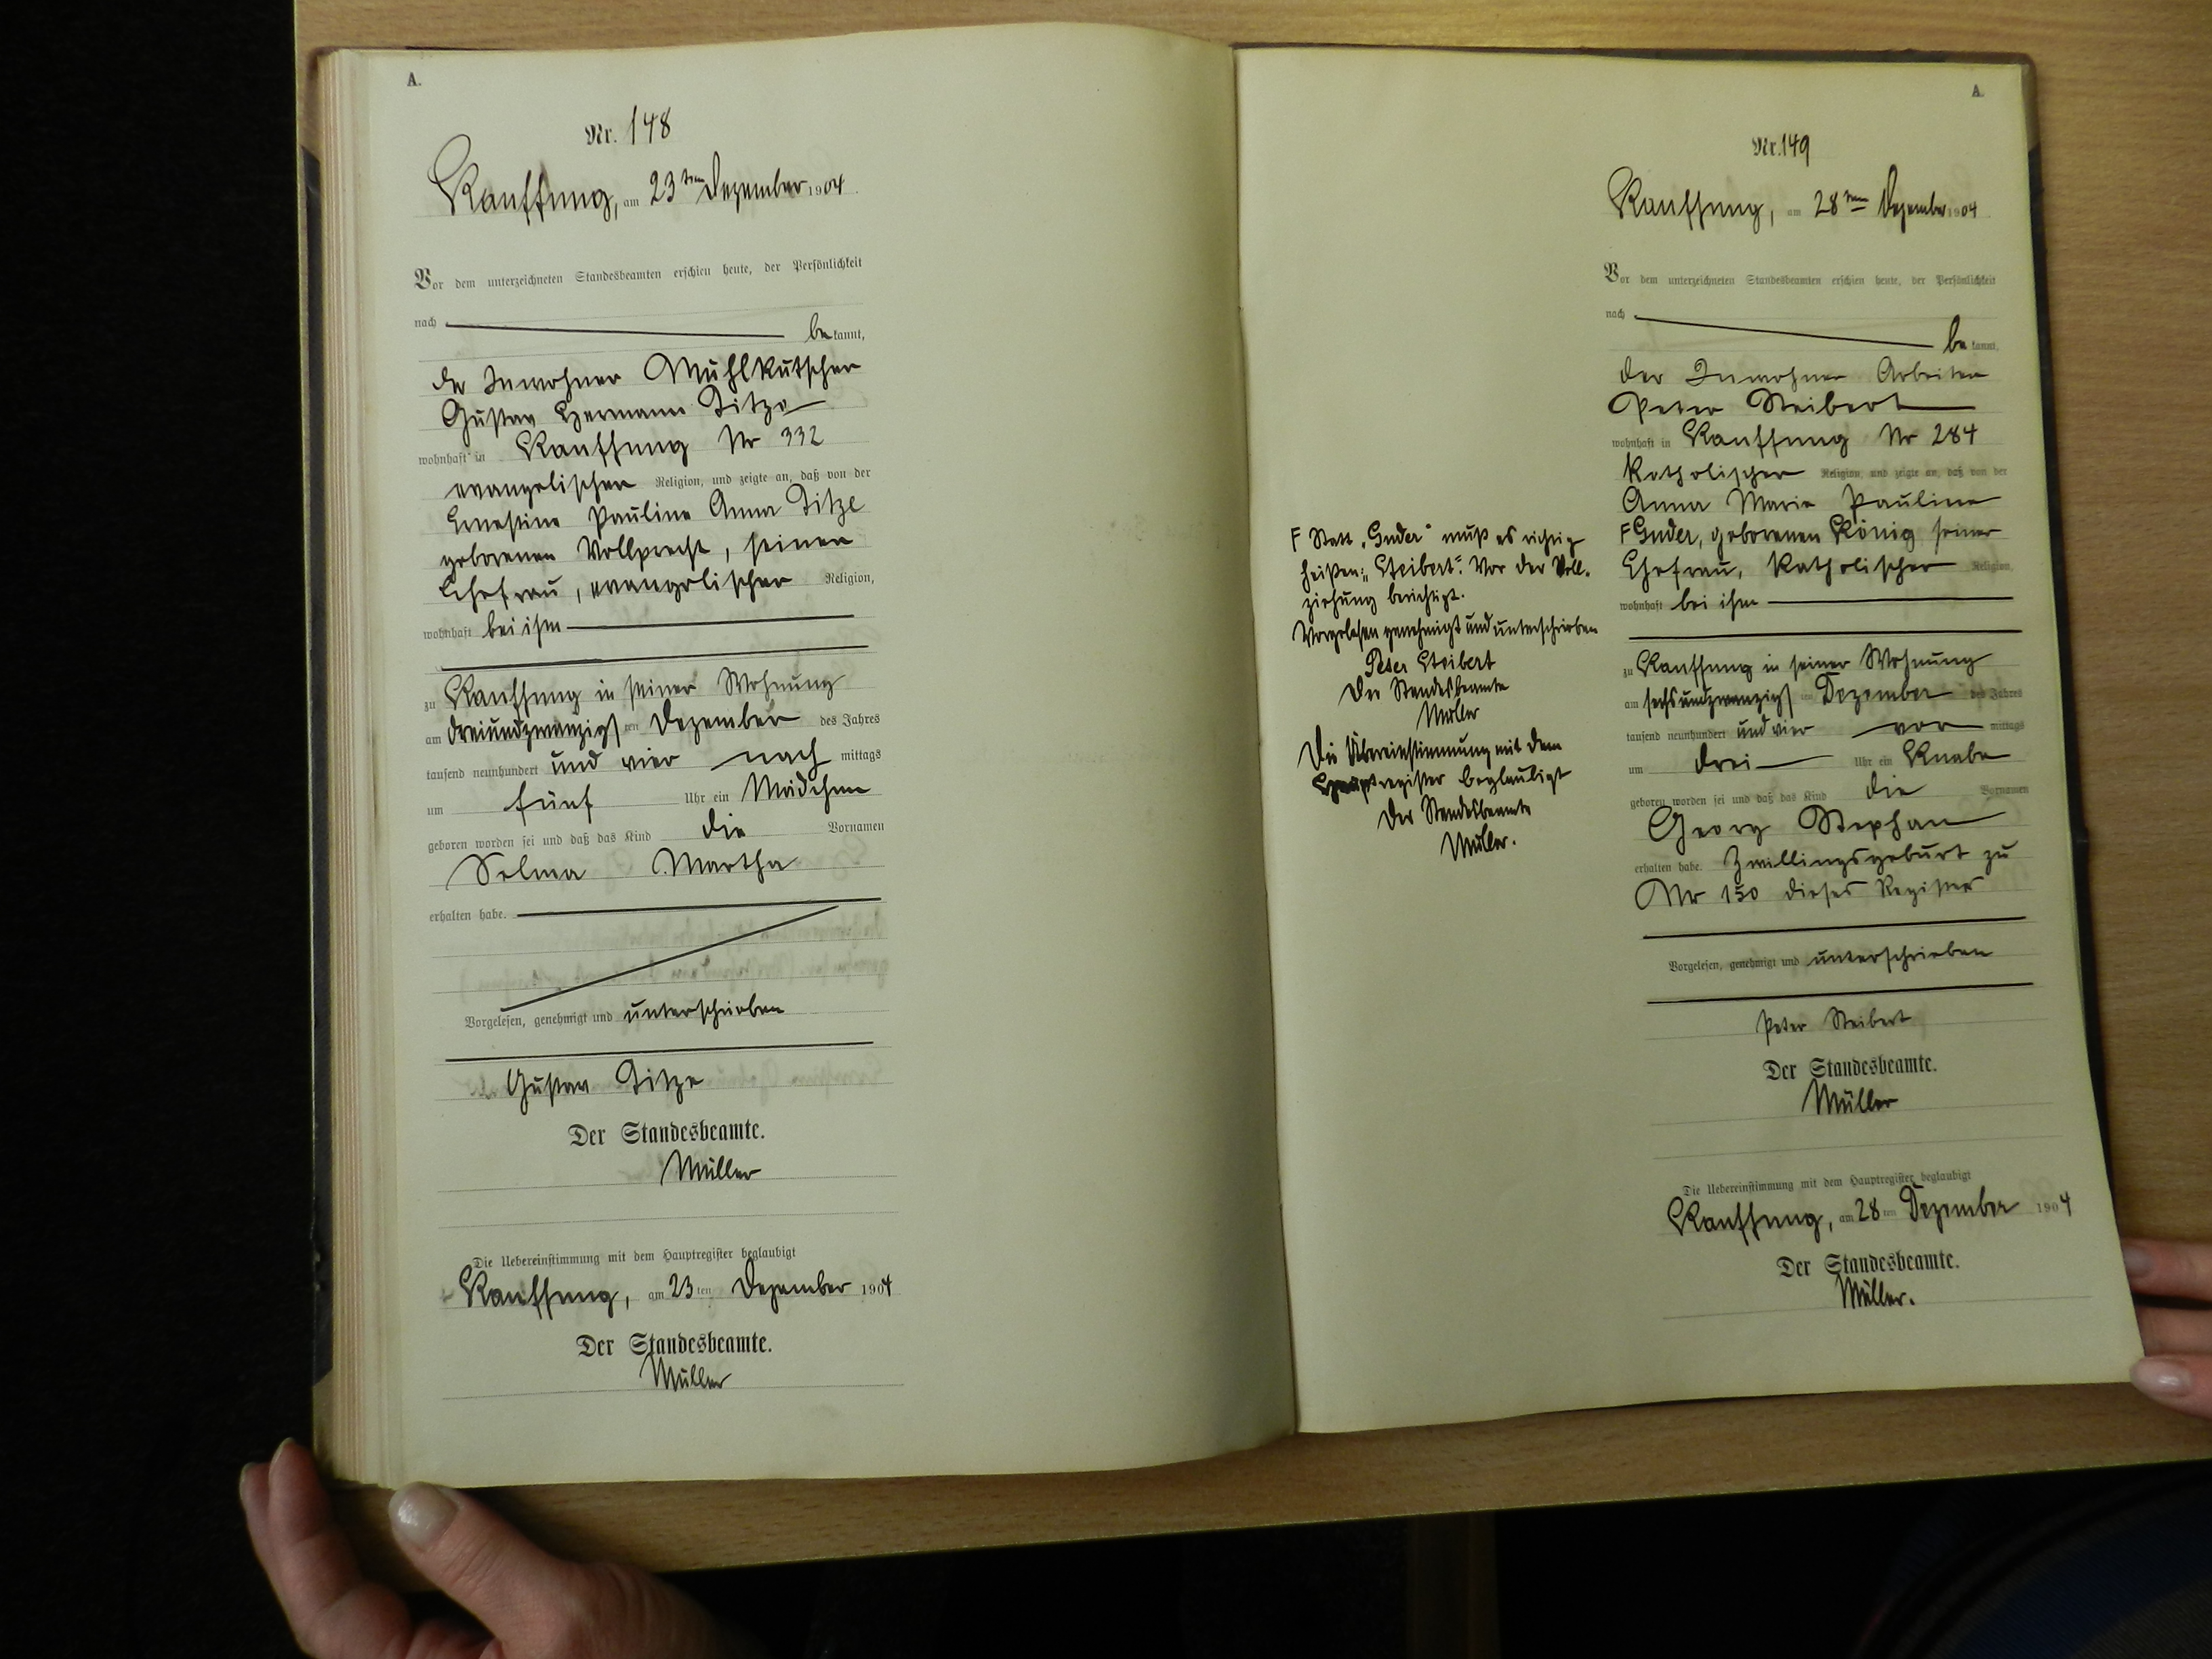 A.
Nr. 148
Kauffung, am 23ten Dezember 1904.
Vor dem unterzeichneten Standesbeamten erschien heute, der Persönlichkeit
nach bekannt,
der Inwohner Mühlkutscher
Gustav Hermann Titze
wohnhaft in Kauffung Nr 332
evangelischer Religion, und zeigte an, daß von der
Ernestine Pauline Anna Titze
geborenen Vollprecht, seiner
Ehefrau, evangelischer Religion,
wohnhaft bei ihm
zu Kauffung in seiner Wohnung
am dreiundzwanzigsten Dezember des Jahres
tausend neunhundert und vier nach mittags
um fünf Uhr ein Mädchen
geboren worden sei und daß das Kind die Vornamen
Selma Martha
erhalten habe.
Vorgelesen, genehmigt und unterschrieben
Gustav Titze
Der Standesbeamte.
Müller
Die Uebereinstimmung mit dem Hauptregister beglaubigt
Kauffung, am 23ten Dezember 1904
Der Standesbeamte.
Müller
A.
Nr. 149
Kauffung, am 28ten Dezember 1904.
Vor dem unterzeichneten Standesbeamten erschien heute, der Persönlichkeit
nach bekannt,
der Inwohner Arbeiter
Peter Steibert
wohnhaft in Kauffung Nr 284
katholischer Religion, und zeigte an, daß von der
Anna Marie Pauline
F Guder, geborenen König seiner
Ehefrau, katholischer Religion,
wohnhaft bei ihm
zu Kauffung in seiner Wohnung
am sechsundzwanzigsten Dezember des Jahres
tausend neunhundert und vier vor mittags
um drei Uhr ein Knabe
geboren worden sei und daß das Kind die Vornamen
Georg Stephan
erhalten habe. Zwillingsgeburt zu
Nr 150 dieses Register
Vorgelesen, genehmigt und unterschrieben
Peter Steibert
Der Standesbeamte.
Müller
Die Uebereinstimmung mit dem Hauptregister beglaubigt
Kauffung, am 28ten Dezember 1904
Der Standesbeamte.
Müller.
F Statt „Guder“ muß es richtig
heißen: „Steibert“. Vor der Voll-
ziehung berichtigt.
Vorgelesen genehmigt und unterschrieben
Peter Steibert
Der Standesbeamte
Müller
Die Übereinstimmung mit dem
Hauptregister beglaubigt
Der Standesbeamte
Müller.